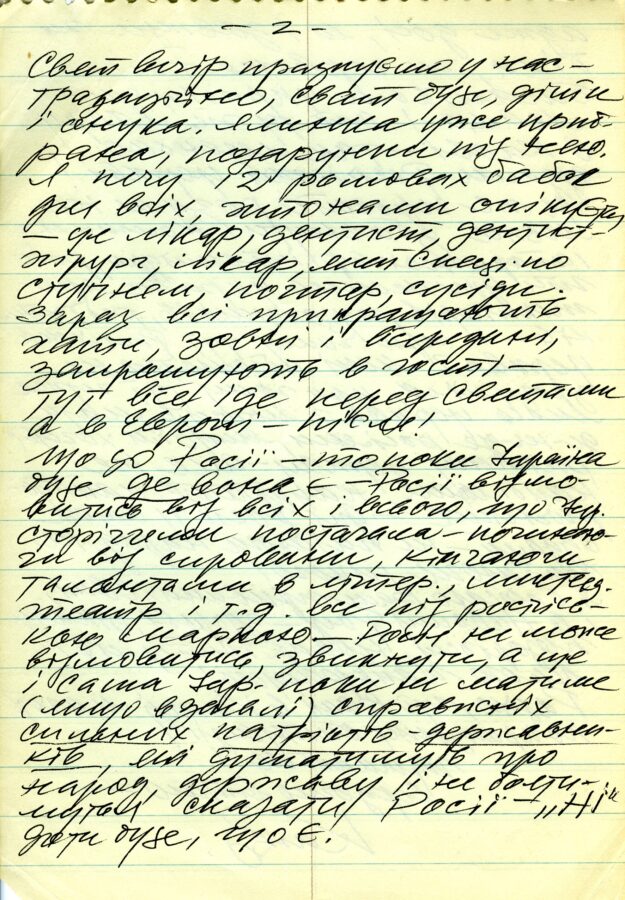 - 2 -
Свят вечір празнуємо у нас -
традиційно, сват буде, діти
і онука. Ялинка уже приб-
рана, подарунки під нею.
Я печу 12 ромових бабок
для всіх,
- це лікар, дентист, дентист-
хірург, лікар, який спец. по
ступням, поштар, сусіди.
Зараз всі прикрашають
хати, зовні і всередині,
запрошують в гості -
тут все іде перед святами
а в Європі - після!
Що до Росії - то поки Україна
буде де вона є - Росії відмо-
витись від всіх і всього, що Укр.
сторіччями постачала - починаю-
чи від сировини, кінчаючи
талантами в літер., мистец.
театр і т.д. все під росiйсь-
кою маркою - Росія не може
відмовитись, звикнути, а ще
і сама Укр. поки не матиме
(якщо взагалі) справжніх
сильних патріотів - державни-
ків, які думатимуть про
народ, державу і не бояти-
муться сказати Росії - „НІ"
доти буде, що є.